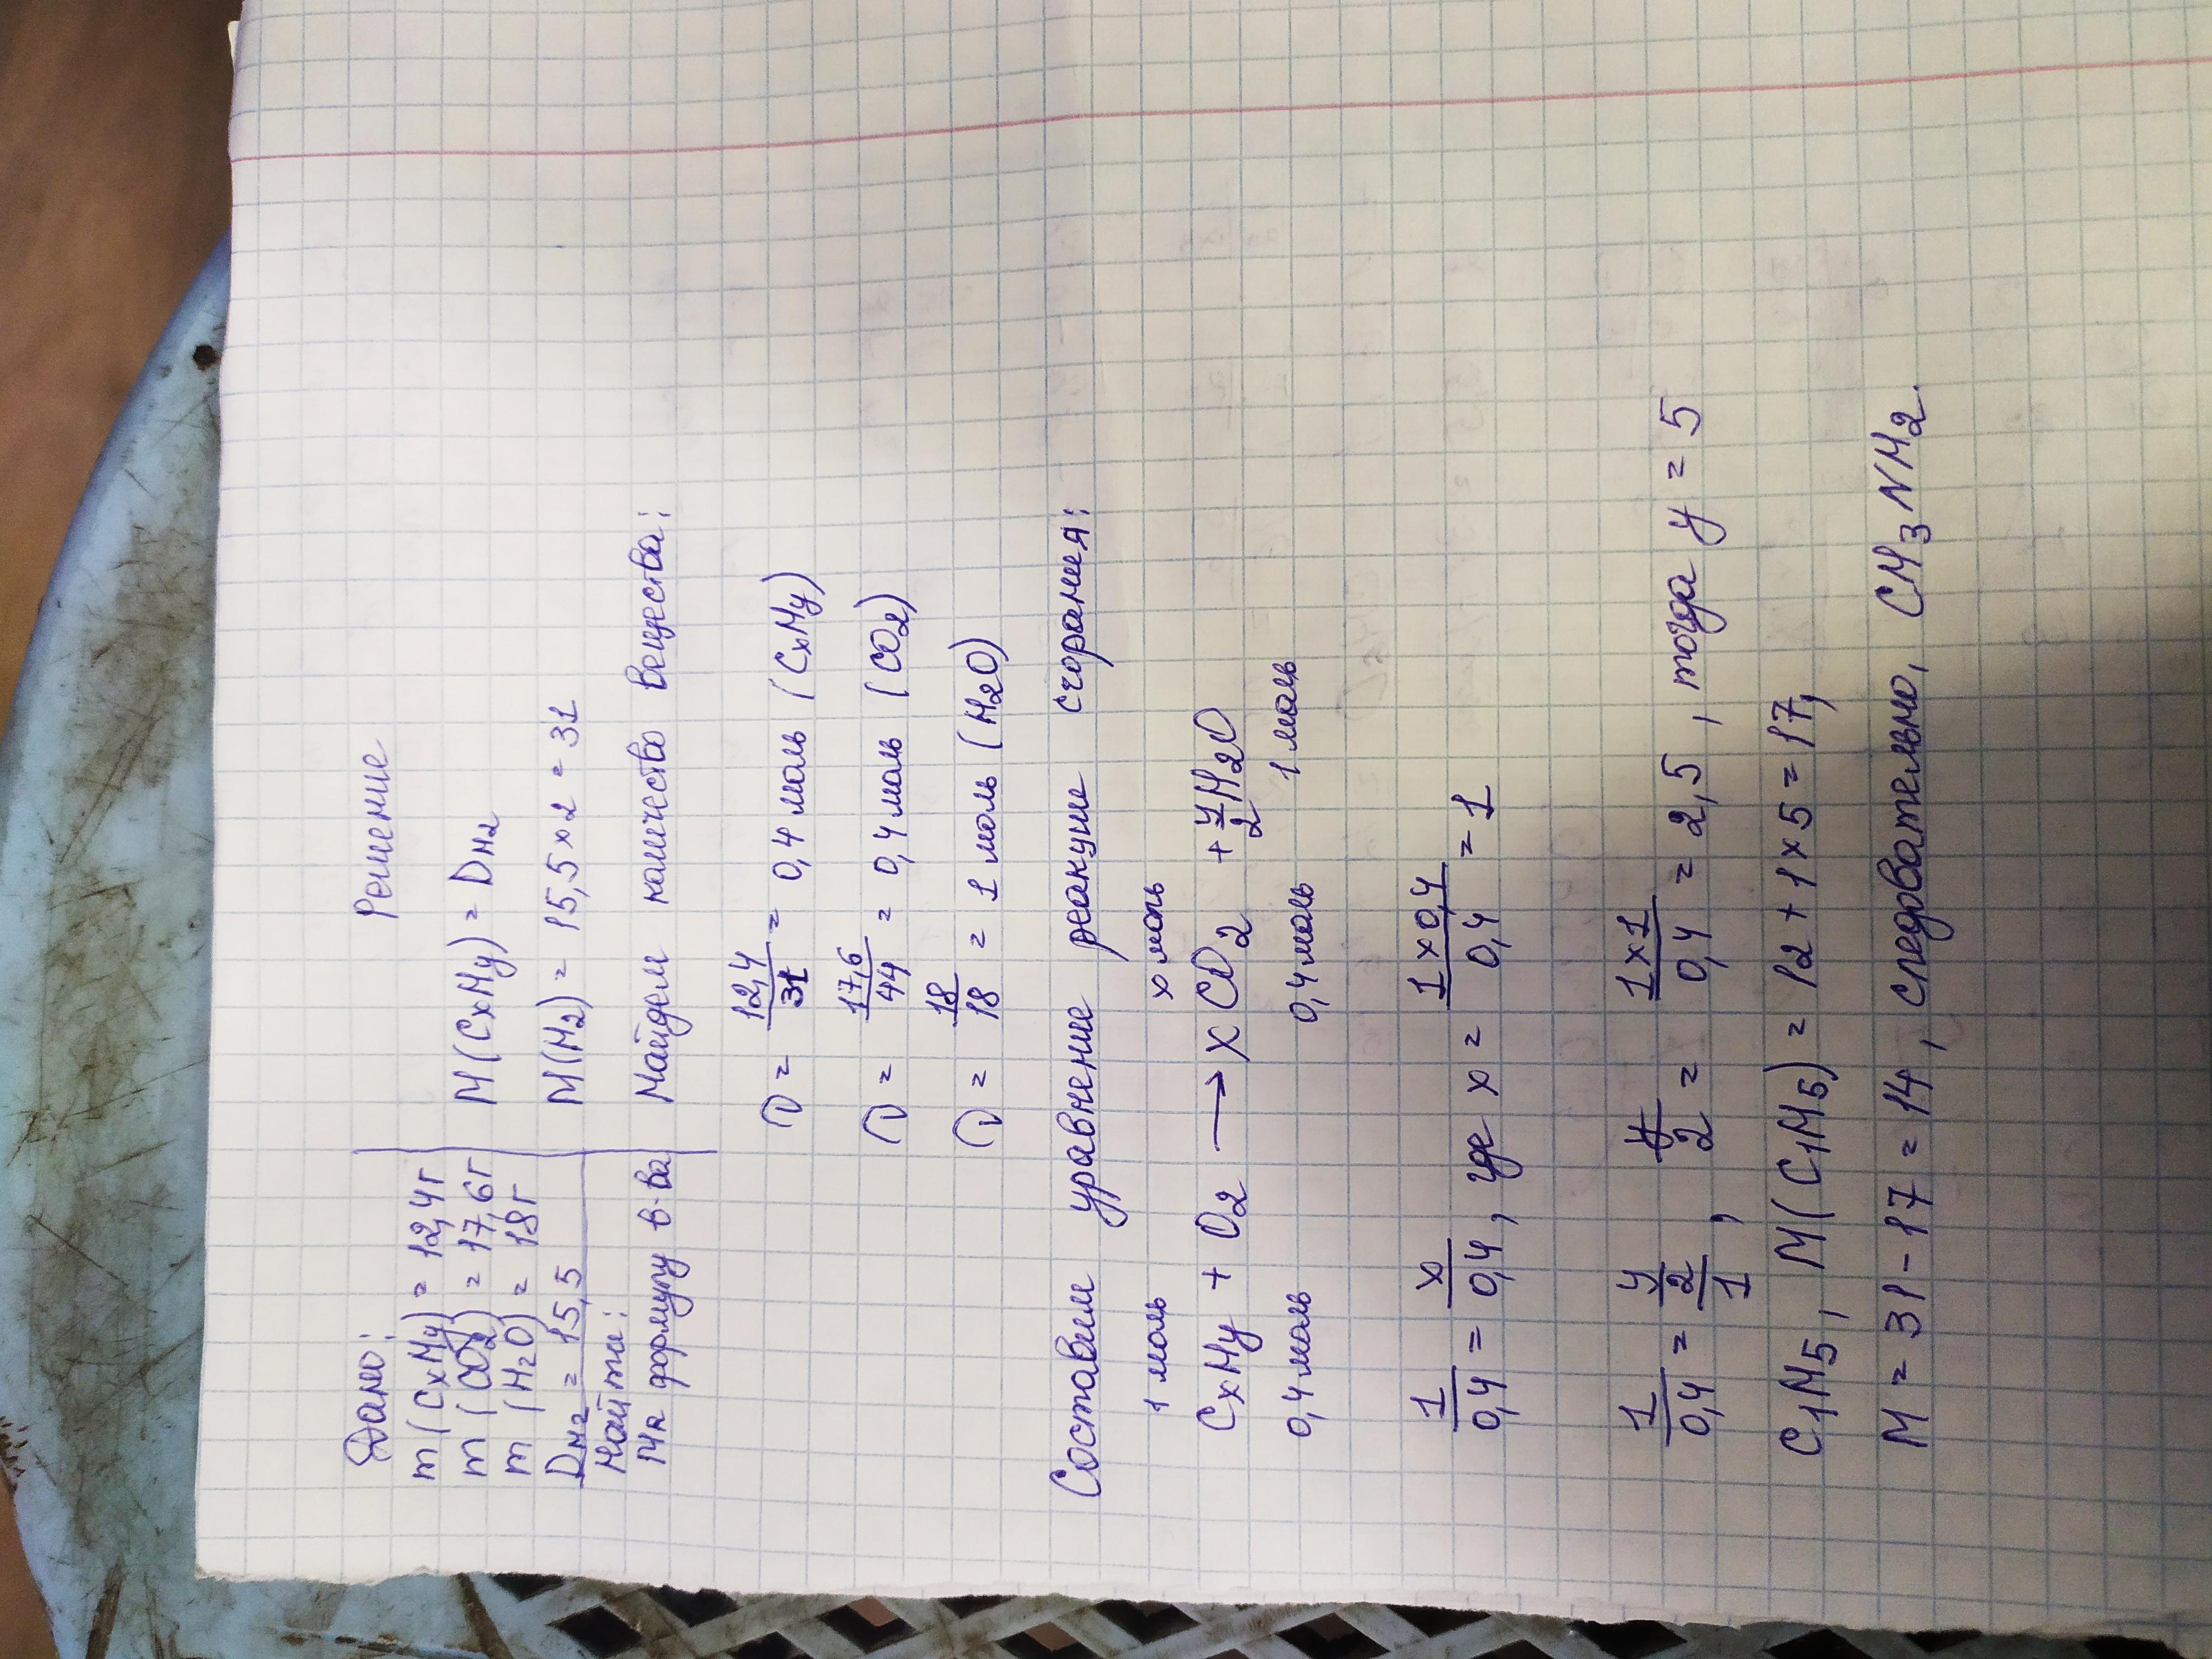 Дано:
m (CxHy) = 12,4г
m (CO2) = 17,6г
m (H2O) = 18г
DH2 = 15,5
Найти:
М/к формулу в-ва
Решение
M (CxHy) = DH2
M(H2) = 15,5 x 2 = 31
Найдем количество вещества:
ν = 12,4/31 = 0,4 моль (CxHy)
ν = 17,6/44 = 0,4 моль (CO2)
ν = 18/18 = 1 моль (H2O)
Составим уравнение реакции сгорания:
1 моль x моль
CxHy + O2 → x CO2 + y/2 H2O
0,4 моль 0,4 моль 1 моль
1/0,4 = x/0,4, где x = 1 x 0,4/0,4 = 1
1/0,4 = y/2/1, y/2 = 1 x 1/0,4 = 2,5, тогда y = 5
C1H5, M (C1H5) = 12 + 1 x 5 = 17,
M = 31 - 17 = 14, следовательно, CH3NH2.